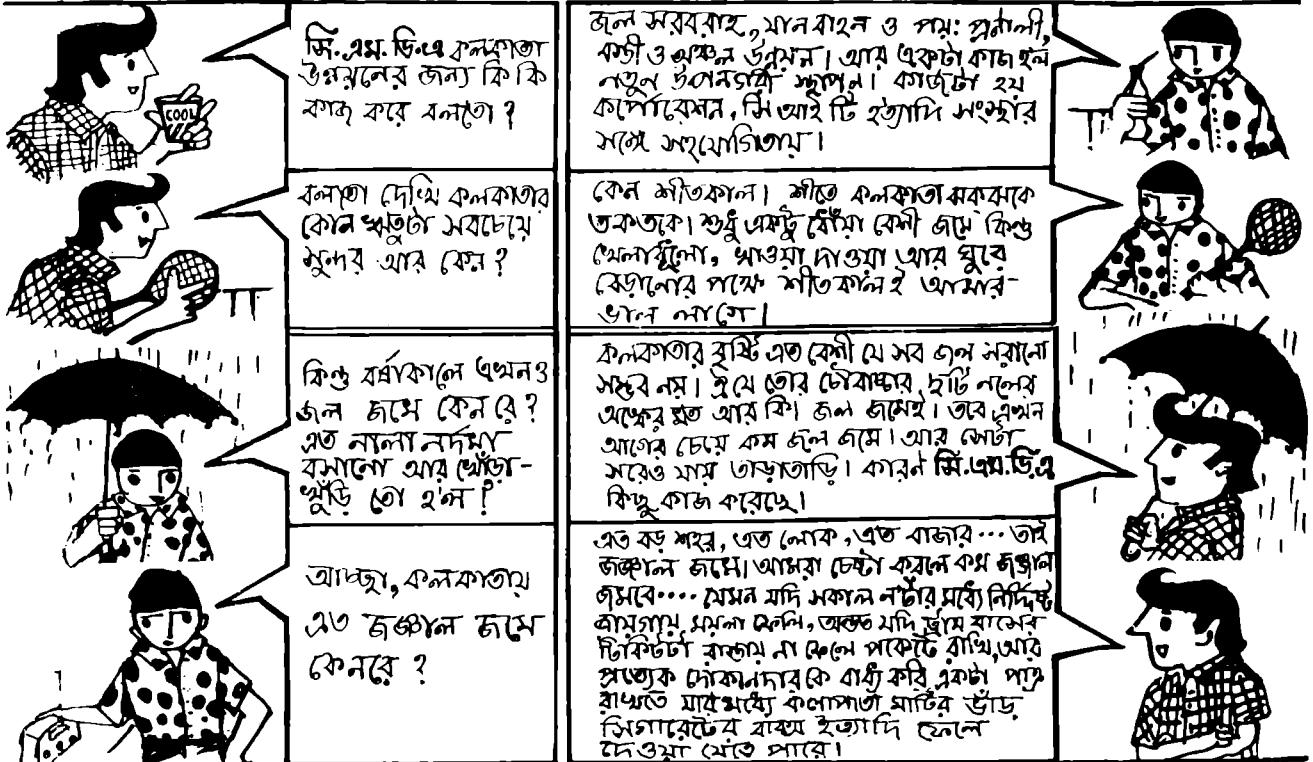 সি.এম.ডি.এ কলকাতা
উন্নয়নের জন্য কি কি
কাজ করে বলতো?
COOL
জল সরবরাহ, যানবাহন ও পয়ঃ প্রনালী,
বস্তী ও অঞ্চল উন্নয়ন। আর একটা কাজ হল
নতুন উপনগরী স্থাপন। কাজটা হয়
কর্পোরেশন, সি আই টি ইত্যাদি সংস্থার
সঙ্গে সহযোগিতায়।
বলতো দেখি কলকাতার
কোন ঋতুটা সবচেয়ে
সুন্দর আর কেন?
কেন শীতকাল। শীতে কলকাতা ঝকঝকে
তকতকে। শুধু একটু ধোঁয়া বেশী জমে কিন্তু
খেলাধূলো, খাওয়া দাওয়া আর ঘুরে
বেড়ানোর পক্ষে শীতকালই আমার
ভাল লাগে।
কিন্তু বর্ষাকালে এখনও
জল জমে কেন রে?
এত নালা নর্দমা
বসানো আর খোঁড়া-
খুঁড়ি তো হল?
কলকাতার বৃষ্টি এত বেশী যে সব জল সরানো
সম্ভব নয়। ঐ যে তোর চৌবাচ্চার দুটি নলের
অঙ্কের মত আর কি। জল জমেই। তবে এখন
আগের চেয়ে কম জল জমে। আর সেটা
সরেও যায় তাড়াতাড়ি। কারন সি.এম.ডি.এ
কিছু কাজ করেছে।
আচ্ছা, কলকাতায়
এত জঞ্জাল জমে
কেনরে?
এত বড় শহর, এত লোক, এত বাজার... তাই
জঞ্জাল জমে। আমরা চেষ্টা করলে কম জঞ্জাল
জমবে.... যেমন যদি সকাল নটার মধ্যে নির্দ্দিষ্ট
জায়গায় ময়লা ফেলি, অন্তত যদি ট্রাম বাসের
টিকিটটা রাস্তায় না ফেলে পকেটে রাখি, আর
প্রত্যেক দোকানদারকে বাধ্য করি একটা পাত্র
রাখতে যার মধ্যে কলাপাতা মাটির ভাঁড়
সিগারেটের বাক্স ইত্যাদি ফেলে
দেওয়া যেতে পারে।